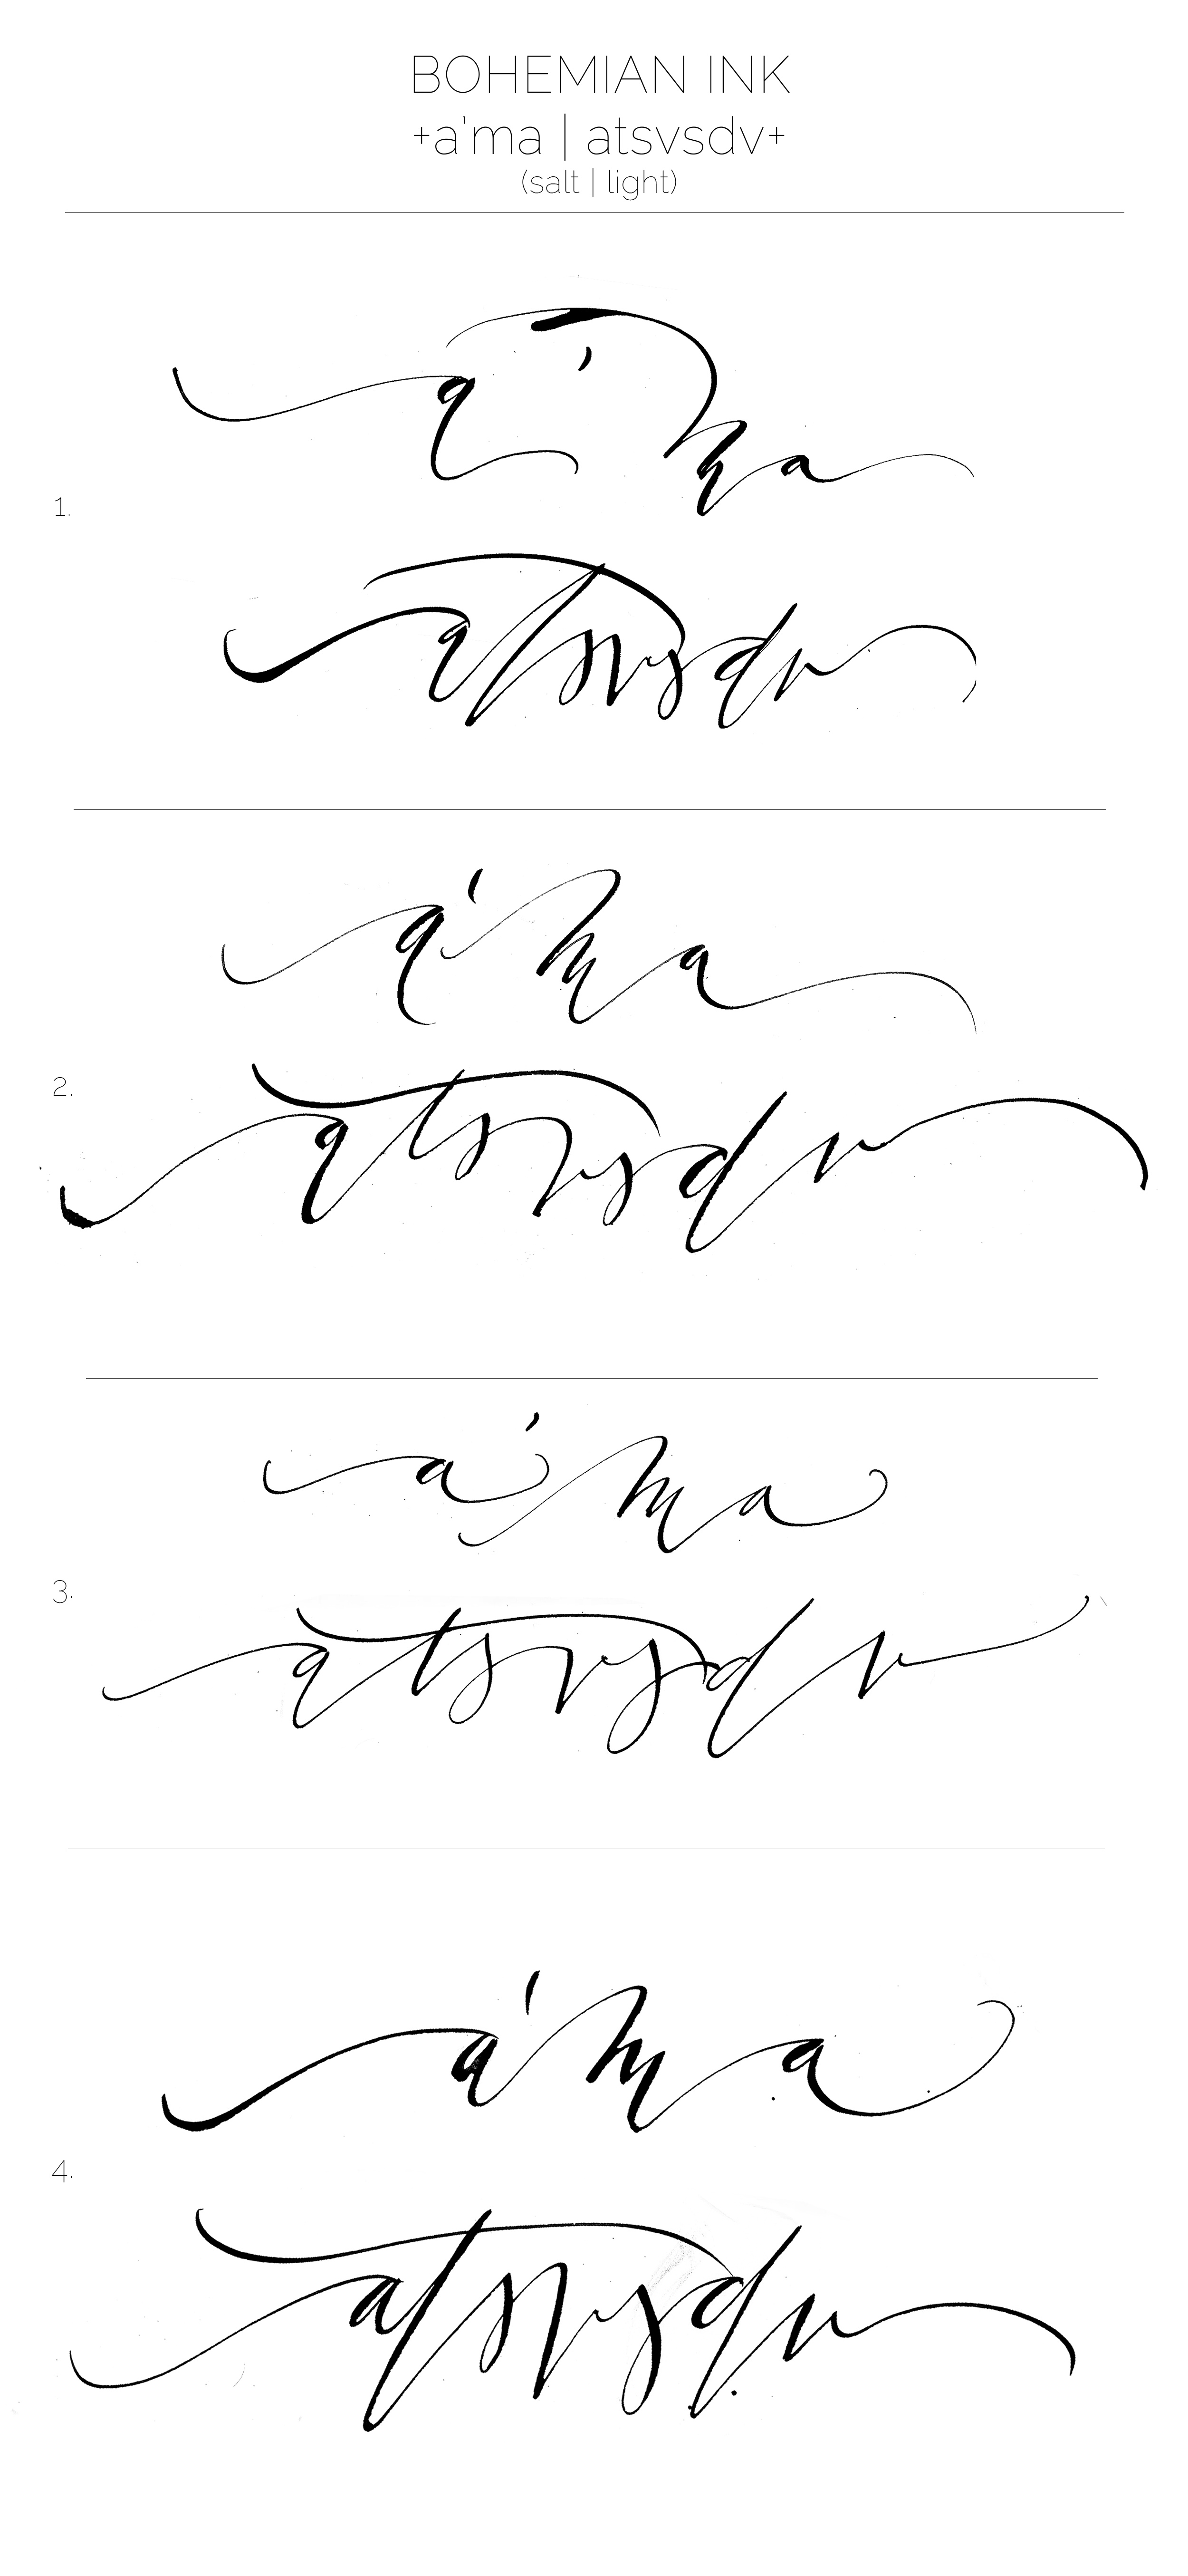 BOHEMIAN INK
+a'ma | atsvsdv+
(salt | light)
a'ma
1.
atsvsdv
a'ma
2.
atsvsdv
a'ma
3.
atsvsdv
a'ma
4.
atsvsdv